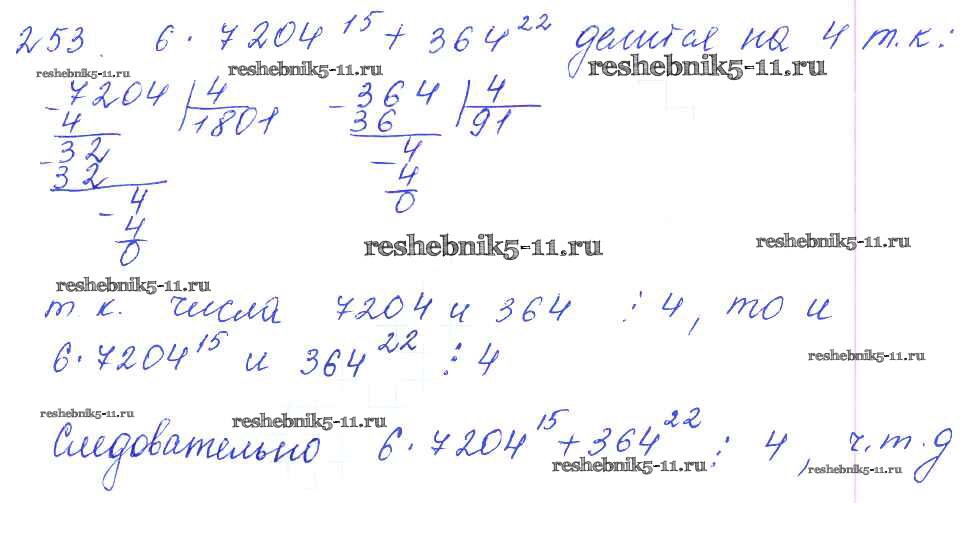 253. 6·7204¹⁵ + 364²² делится на 4 т.к:
reshebnik5-11.ru reshebnik5-11.ru reshebnik5-11.ru
-7204 | 4 -364 | 4
4 1801 36 91
-32 -4
32 4
-4 0
4
0
reshebnik5-11.ru reshebnik5-11.ru
reshebnik5-11.ru
т к. числа 7204 и 364 ⋮ 4, то и
6·7204¹⁵ и 364²² ⋮ 4
reshebnik5-11.ru
reshebnik5-11.ru reshebnik5-11.ru
Следовательно 6·7204¹⁵ + 364²² ⋮ 4, ч.т.д
reshebnik5-11.ru reshebnik5-11.ru